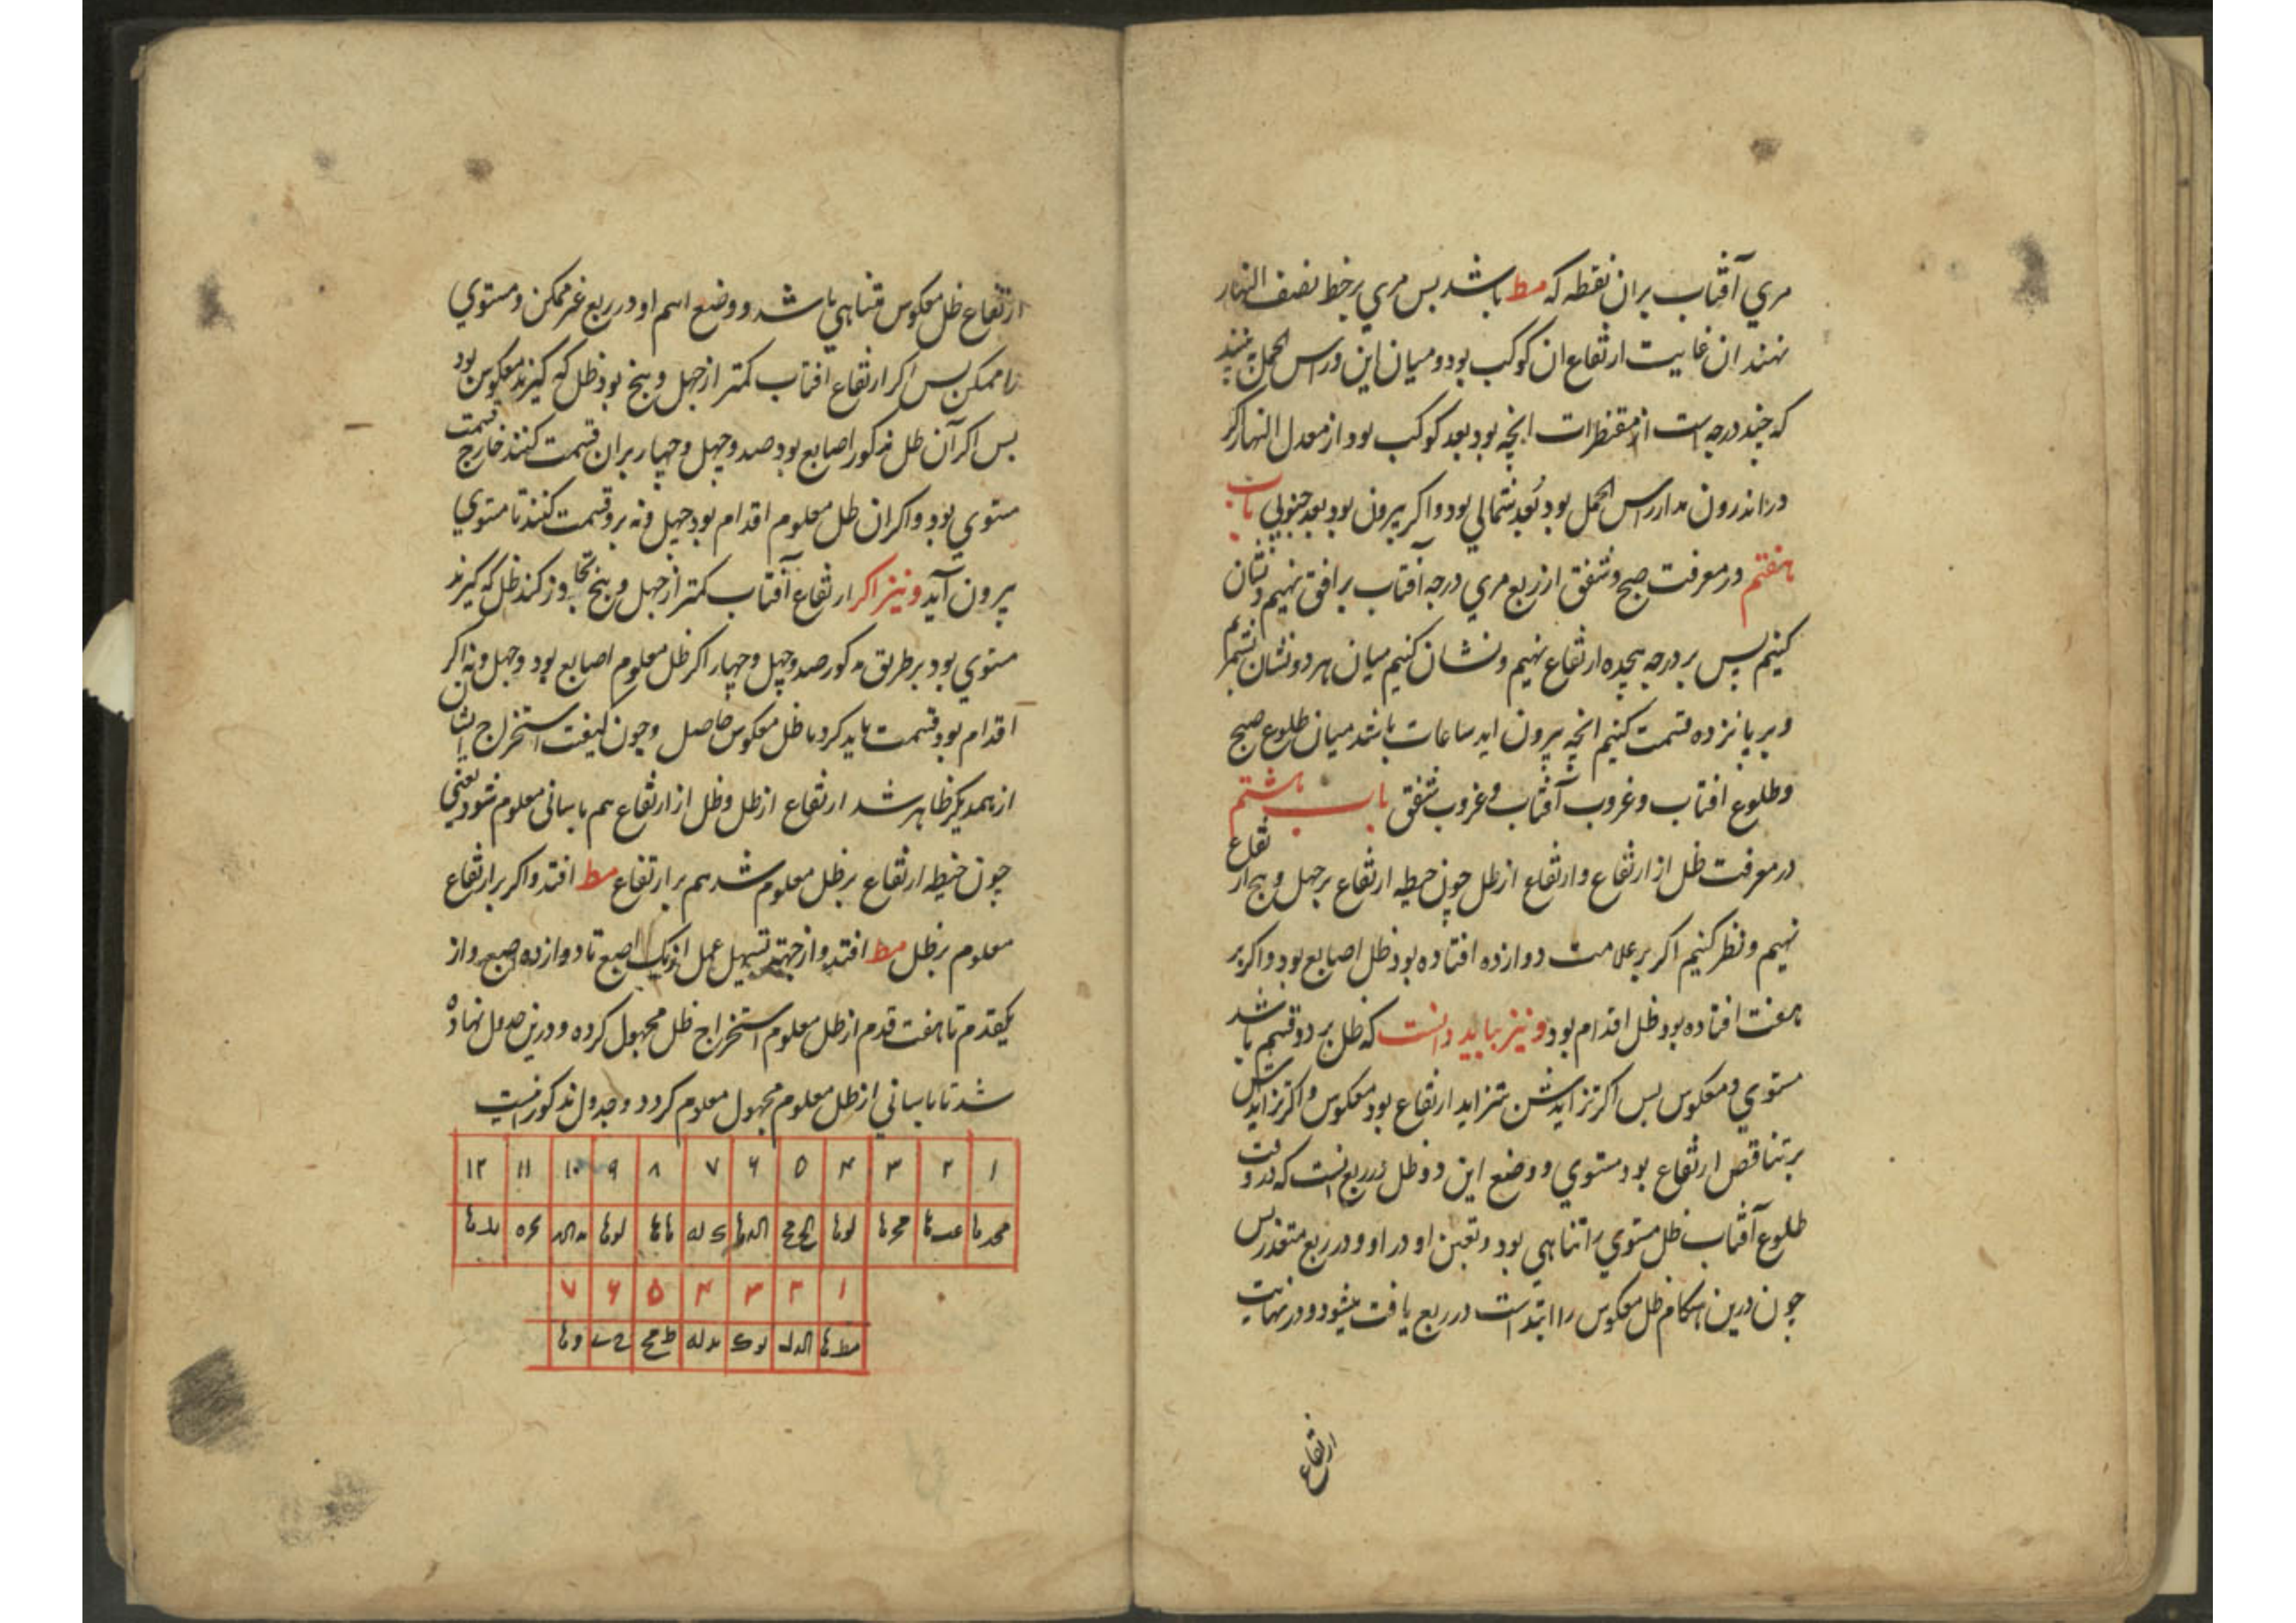 مري آفتاب بران نقطه كه مط باشد بس مري برخط نصف النهار
نهند ان غايت ارتفاع ان كوكب بود و ميان اين وراس الحمل به بينند
كه چند درجه است از مقنطرات انچه بود بعد كوكب بود از معدل النهار اكر
در اندرون مدار راس الحمل بود بُعد شمالي بود واكر بيرون بود بعد جنوبي باب
هفتم در معرفت صبح و شفق از ربع مري درجه آفتاب بر افق نهيم و نشان
كنيم پس بر درجه هجده ارتفاع نهيم و نشان كنيم ميان هر دو نشان بشمريم
و بر پانزده قسمت كنيم انچه بيرون ايد ساعات باشد ميان طلوع صبح
وطلوع افتاب و غروب آفتاب و غروب شفق باب هشتم
در معرفت ظل از ارتفاع وارتفاع از ظل چون خيطه ارتفاع بر چهل و پنج ارتفاع
نهيم و نظر كنيم اكر بر علامت دوازده افتاده بود ظل اصابع بود واكر بر
هفت افتاده بود ظل اقدام بود ونيز ببايد دانست كه ظل بر دو قسم باشد
مستوي و معكوس بس اكر تزايدش بتزايد ارتفاع بود معكوس واكر تزايدش
بر تناقص ارتفاع بود مستوي و وضع اين دو ظل در ربع انست كه در وقت
طلوع آفتاب ظل مستوي را تناهي بود و تعين او در او و در ربع متعذر بس
چون درين هنكام ظل معكوس را ابتداست در ربع يافت ميشود و در نهايت
ارتفاع
ارتفاع ظل معكوس متناهي باشد و وضع اسم او در ربع غير ممكن و مستوي
را ممكن بس اكر ارتفاع افتاب كمتر از چهل و پنج بود ظل كه كيرند معكوس بود
بس اكر آن ظل مذكور اصابع بود صد و چهل و چهار بران قسمت كنند خارج قسمت
مستوي بود واكر ان ظل معلوم اقدام بود چهل و نه برو قسمت كنند تا مستوي
بيرون آيد ونيز اكر ارتفاع آفتاب كمتر از چهل و پنج تجاوز كند ظل كه كيرند
مستوي بود بر طريق مذكور صد و چهل و چهار اكر ظل معلوم اصابع بود و چهل و نه اكر
اقدام بود قسمت بايد كرد تا ظل معكوس حاصل وچون كيفيت استخراج ايشان
از همديكر ظاهر شد ارتفاع از ظل وظل از ارتفاع هم باساني معلوم شود يعني
چون خيطه ارتفاع بر ظل معلوم شد هم بر ارتفاع مط افتد واكر بر ارتفاع
معلوم بر ظل مط افتد و از جهت تسهيل عمل از يك اصبع تا دوازده اصبع و از
يكقدم تا هفت قدم از ظل معلوم استخراج ظل مجهول كرده و درين جدول نهاده
شد تا باساني از ظل معلوم مجهول معلوم كردد و جدول مذكور اينست
۱ ۲ ۳ ۴ ۵ ۶ ۷ ۸ ۹ ۱۰ ۱۱ ۱۲
۱ ۲ ۳ ۴ ۵ ۶ ۷